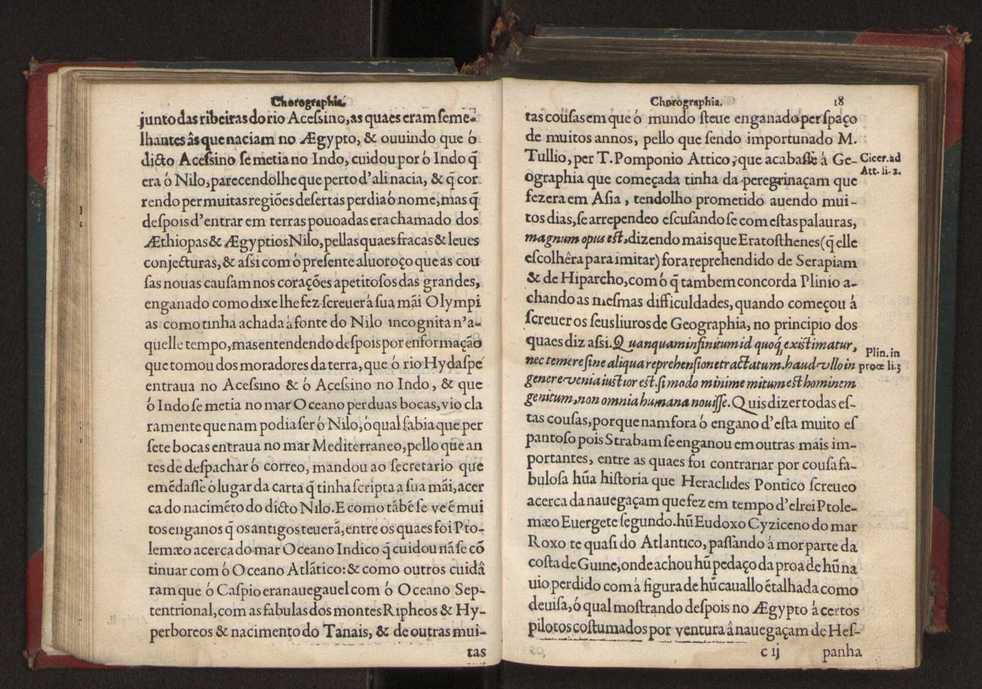 Chorographia.
junto das ribeiras do rio Acessino, as quaes eram seme-
lhantes âs que naciam no Ægypto, & ouuindo que ó
dicto Acessino se metia no Indo, cuidou por ó Indo q̃
era ó Nilo, parecendolhe que perto d'ali nacia, & q̃ cor
rendo per muitas regiões desertas perdia ó nome, mas q̃
despois d'entrar em terras pouoadas era chamado dos
Æthiopas & Ægyptios Nilo, pellas quaes fracas & leues
conjecturas, & assi com ó presente aluoroço que as cou
sas nouas causam nos corações apetitosos das grandes,
enganado como dixe lhe fez screuer á sua mãi Olympi
as como tinha achada á fonte do Nilo incognita n'a-
quelle tempo, mas entendendo despois por enformação
que tomou dos moradores da terra, que ó rio Hydaspe
entraua no Acessino & ó Acessino no Indo, & que
ó Indo se metia no mar Oceano per duas bocas, vio cla
ramente que nam podia ser ó Nilo, ó qual sabia que per
sete bocas entraua no mar Mediterraneo, pello que an
tes de despachar ó correo, mandou ao secretario que
emẽdasse ó lugar da carta q̃ tinha scripta a sua mãi, acer
ca do nacimẽto do dicto Nilo. E como tãbẽ se ve ẽ mui
tos enganos q̃ os antigos teuerã, entre os quaes foi Pto-
lemæo acerca do mar Oceano Indico q̃ cuidou nã se cõ
tinuar com ó Oceano Atlãtico: & como outros cuidâ
ram que ó Caspio era nauegauel com ó Oceano Sep-
tentrional, com as fabulas dos montes Ripheos & Hy-
perboreos & nacimento do Tanais, & de outras mui-
tas
Chorographia. 18
tas cousas em que ó mundo steue enganado per spaço
de muitos annos, pello que sendo importunado M.
Tullio, per T. Pomponio Attico, que acabasse á Ge-
ographia que começada tinha da peregrinaçam que
fezera em Asia, tendolho prometido auendo mui-
tos dias, se arrependeo escusandose com estas palauras,
magnum opus est, dizendo mais que Eratosthenes (q̃ elle
escolhêra para imitar) fora reprehendido de Serapiam
& de Hiparcho, com ó q̃ tambem concorda Plinio a-
chando as mesmas difficuldades, quando começou á
screuer os seus liuros de Geographia, no principio dos
quaes diz assi. Quanquam infinitum id quoq; existimatur,
nec temere sine aliqua reprehensione tractatum. haud vllo in
genere venia iustior est. si modo minime mirum est hominem
genitum, non omnia humana nouisse. Quis dizer todas es-
tas cousas, porque nam fora ó engano d'esta muito es
pantoso pois Strabam se enganou em outras mais im-
portantes, entre as quaes foi contrariar por cousa fa-
bulosa hũa historia que Heraclides Pontico screueo
acerca da nauegaçam que fez em tempo d'elrei Ptole-
mæo Euergete segundo. hũ Eudoxo Cyziceno do mar
Roxo te quasi do Atlantico, passando á mor parte da
costa de Guine, onde achou hũ pedaço da proa de hũ na
uio perdido com á figura de hũ cauallo ẽtalhada como
deuisa, ó qual mostrando despois no Ægypto â certos
pilotos costumados por ventura â nauegaçam de Hes-
c ij panha
Cicer. ad
Att. li. 2.
Plin. in
proœ li. 3